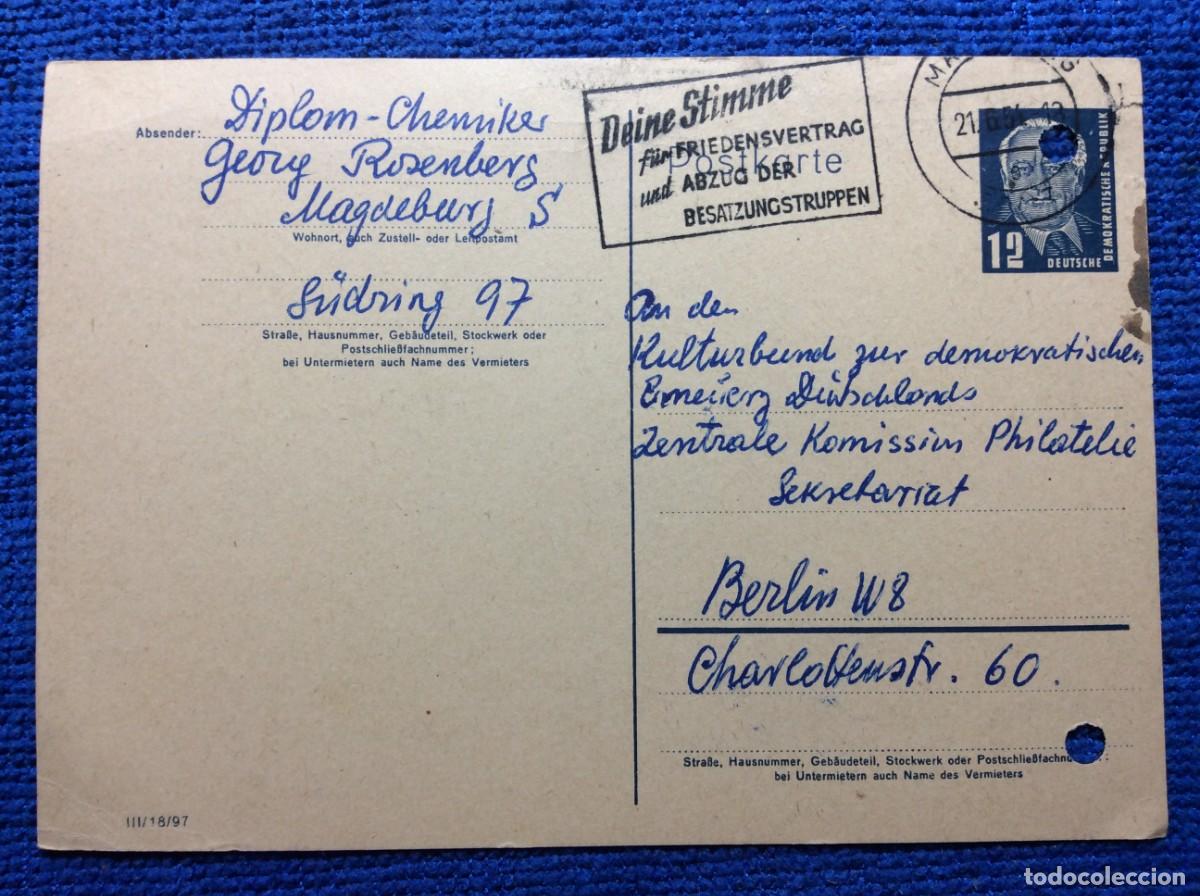 Absender: Diplom-Chemiker
Georg Rosenberg
Magdeburg S
Wohnort, auch Zustell- oder Leitpostamt
Südring 97
Straße, Hausnummer, Gebäudeteil, Stockwerk oder
Postschließfachnummer;
bei Untermietern auch Name des Vermieters
III/18/97
Deine Stimme
für FRIEDENSVERTRAG
und ABZUG DER
BESATZUNGSTRUPPEN
Postkarte
21.6.54
12
DEUTSCHE
DEMOKRATISCHE REPUBLIK
An den
Kulturbund zur demokratischen
Erneuerg Deutschlands
Zentrale Komission Philatelie
Sekretariat
Berlin W8
Charlottenstr. 60.
Straße, Hausnummer, Gebäudeteil, Stockwerk oder Postschließfachnu
bei Untermietern auch Name des Vermieters
todocoleccion